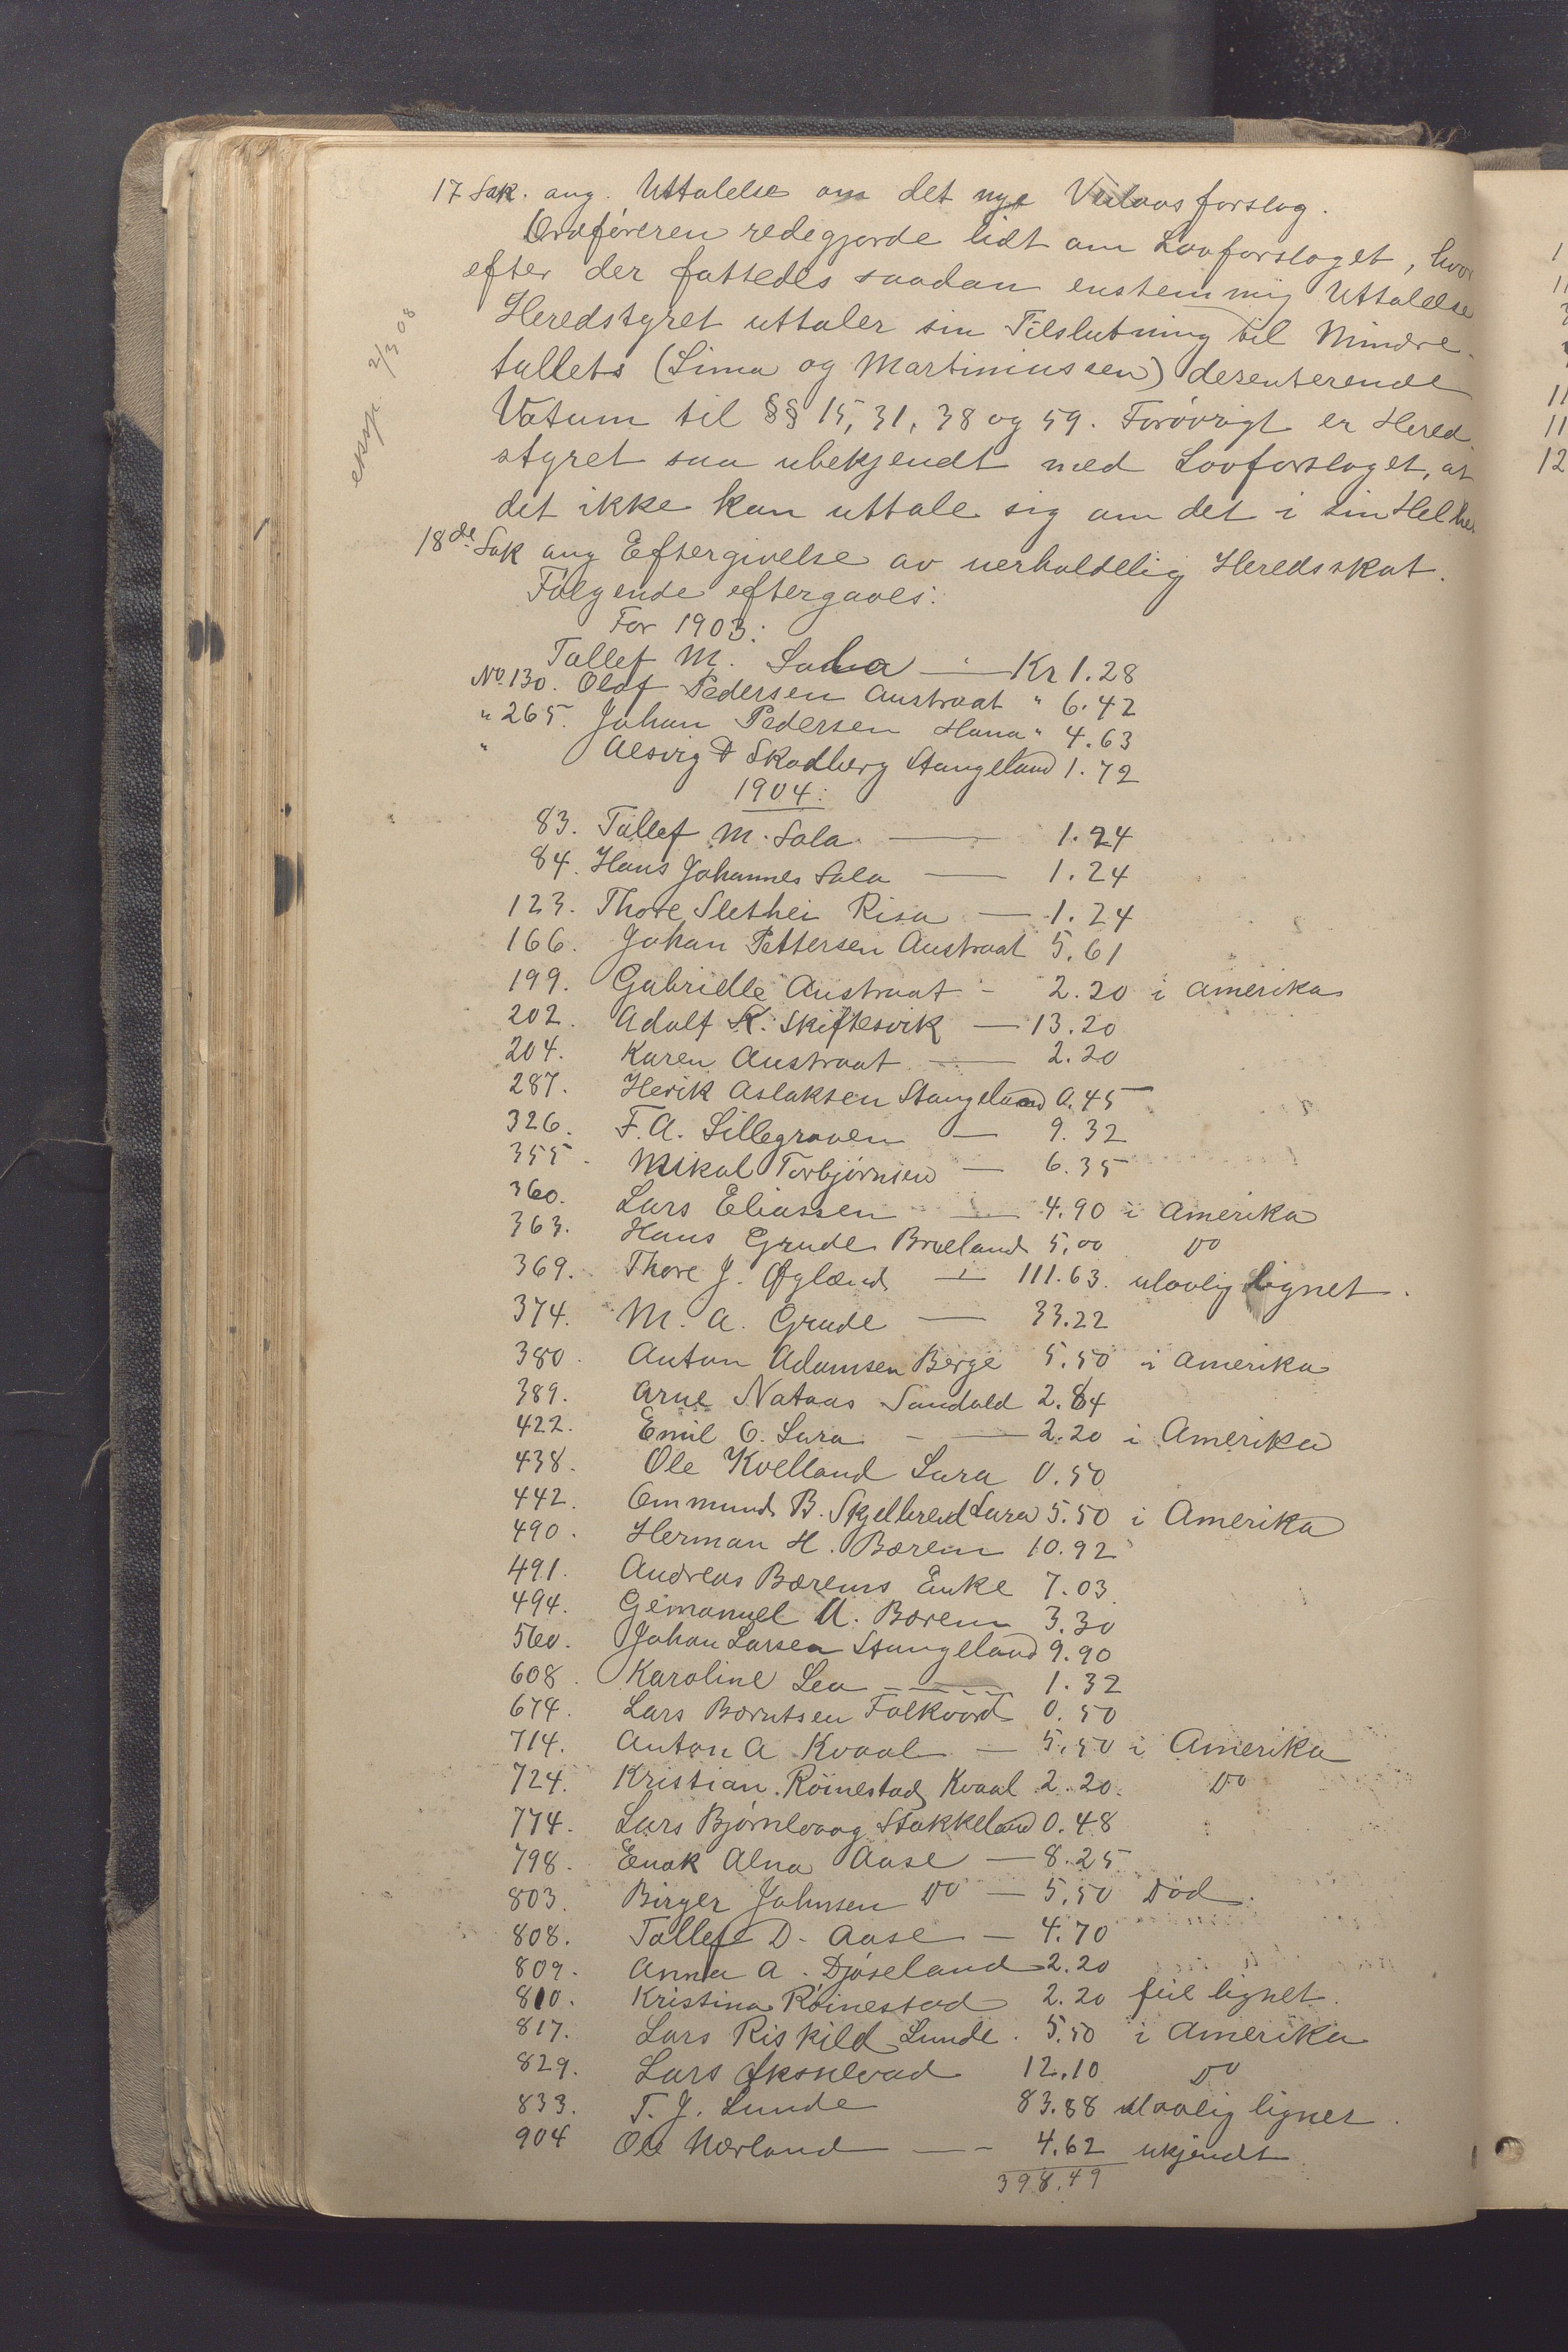 17 Sak. ang. Uttalelse om det nye Veilovsforslag.
Ordføreren redegjorde lidt om Lovforslaget, hvor
efter der fattedes saadan enstemmig Uttalelse
Heredstyret uttaler sin Tilslutning til Mindre-
tallets (Lima og Martiniussen) desenterende
Votum til §§ 15, 31, 38 og 59. Forøvrigt er Hered
styret saa ubekjendt med Lovforslaget, at
det ikke kan uttale sig om det i sin Helhet
eksp. 2/3 08
18de Sak ang Eftergivelse av uerholdelig Heredsskat.
Følgende eftergaves:
For 1903:
Tollef M. Sola — Kr 1.28
No. 130. Olaf Pedersen Austraat " 6.42
" 265. Johan Pedersen Hana " 4.63
" Aesvig & Skadberg Stangeland 1.72
1904:
83. Tollef M. Sola — 1.24
84. Hans Johannes Sola — 1.24
123. Thore Slethei Risa — 1.24
166. Johan Pettersen Austraat 5.61
199. Gabrielle Austraat - 2.20 i Amerika
202. Adolf K. Skiftesvik — 13.20
204. Karen Austraat — 2.20
287. Herik Aslaksen Stangeland 0.45
326. F. A. Lillegraven — 9.32
355. Mikal Torbjørnsen — 6.35
360. Lars Eliassen — 4.90 i Amerika
363. Hans Grude Brueland 5,00 Do
369. Thore J. Øglænd — 111.63. ulovlig lignet.
374. M. A. Grude — 33.22
380. Anton Adamsen Berge 5.50 i Amerika
389. Arne Nataas Sandved 2.84
422. Emil O. Lura — 2.20 i Amerika
438. Ole Kvelland Lura 0.50
442. Ommund B. Skjelbreid Lura 5.50 i Amerika
490. Herman H. Bærem 10.92
491. Andreas Bærems Enke 7.03
494. Gemanuel A. Bærem 3.30
560. Johan Larsen Stangeland 9.90
608. Karoline Lea — 1.32
674. Lars Berntsen Folkvord 0.50
714. Anton A Kvaal — 5.50 i Amerika
724. Kristian Röinestad Kvaal 2.20. Do
774. Lars Bjørnevaag Stokkeland 0.48
798. Enok Alna Aase — 8.25
803. Birger Johnsen Do — 5.50 Död.
808. Tollef D. Aase — 4.70
809. Anna A. Djøseland 2.20
810. Kristina Röinestad 2.20 feil lignet.
817. Lars Riskild Lunde. 5.50 i Amerika
829. Lars 12.10 Do
833. T. J. Lunde 83.88 ulovlig lignet.
904 Ole Nærland — 4.62 ukjendt
398.49